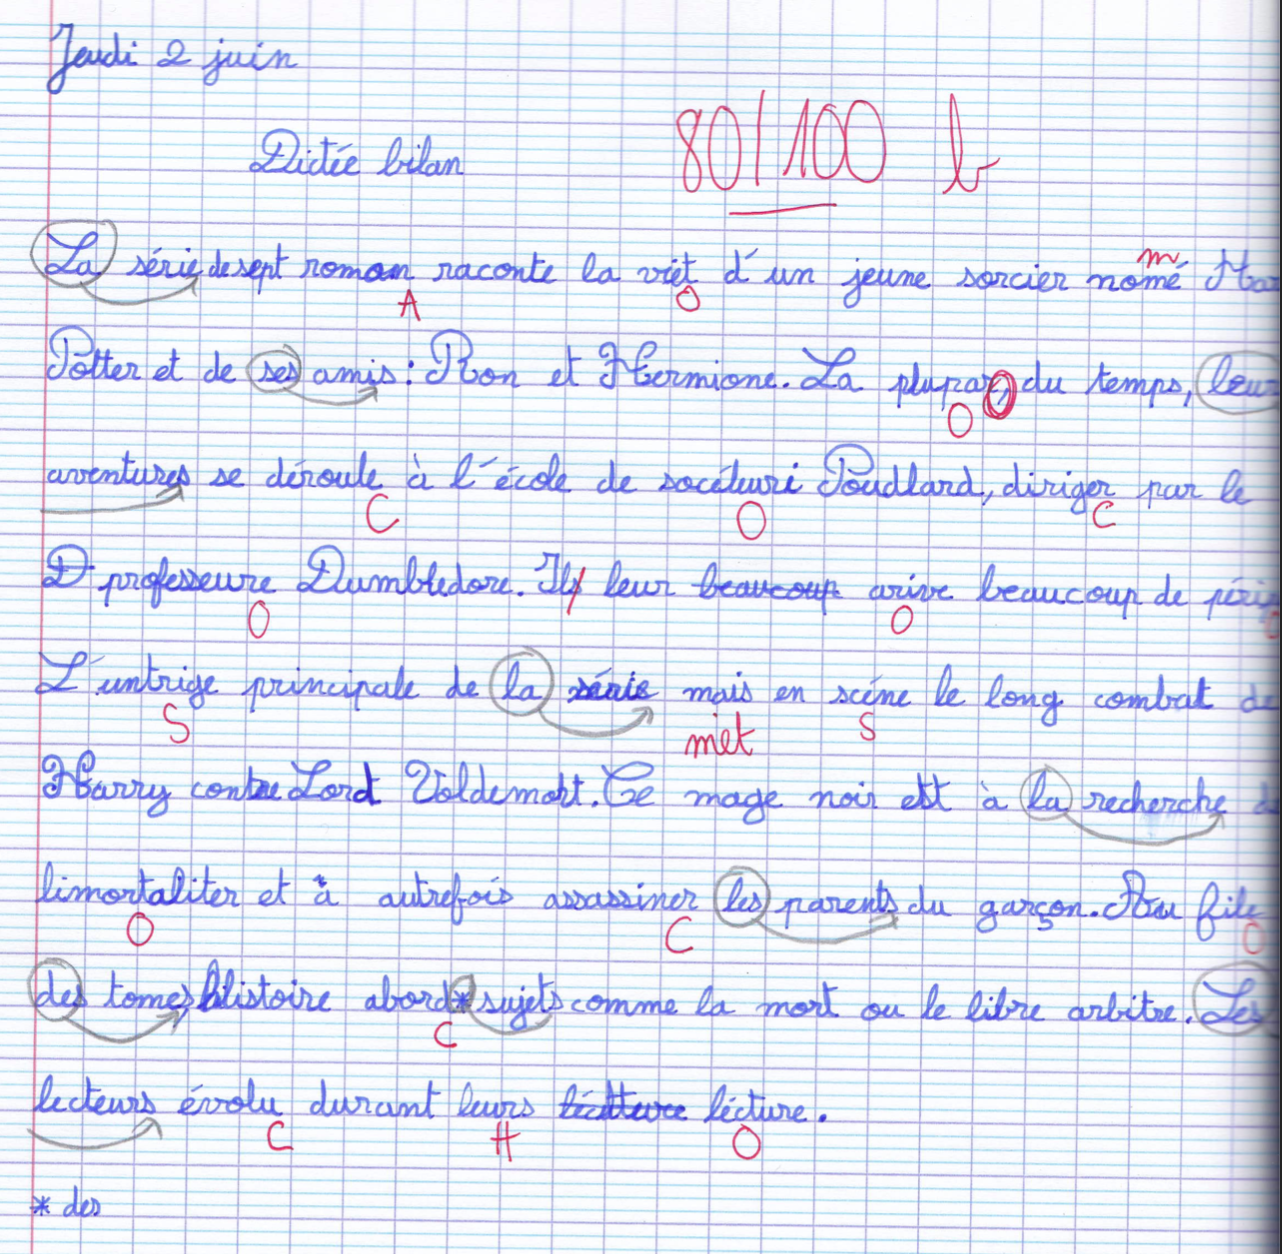 Jeudi 2 juin
Dictée bilan
80/100 b
La série de sept roman raconte la viet d'un jeune sorcier nomé
m
A O
Potter et de ses amis : Ron et Hermione. La plupar, du temps, leur
O
aventures se déroule à l'école de socéleuri Poudlard, diriger par le
C O C
D professeure Dumbledore. Ils leur beaucoup arive beaucoup de
O O
L'untrige principale de la série mais en scéne le long combat de
S met S
Harry contre Lord Voldemort. Ce mage noir est à la recherche
limortaliter et à autrefois assassiner les parents du garçon. Au file
O C O
des tomes, l'histoire abord * sujets comme la mort ou le libre arbitre. Les
C
lecteurs évolu durant leurs lécture.
C H O
* des